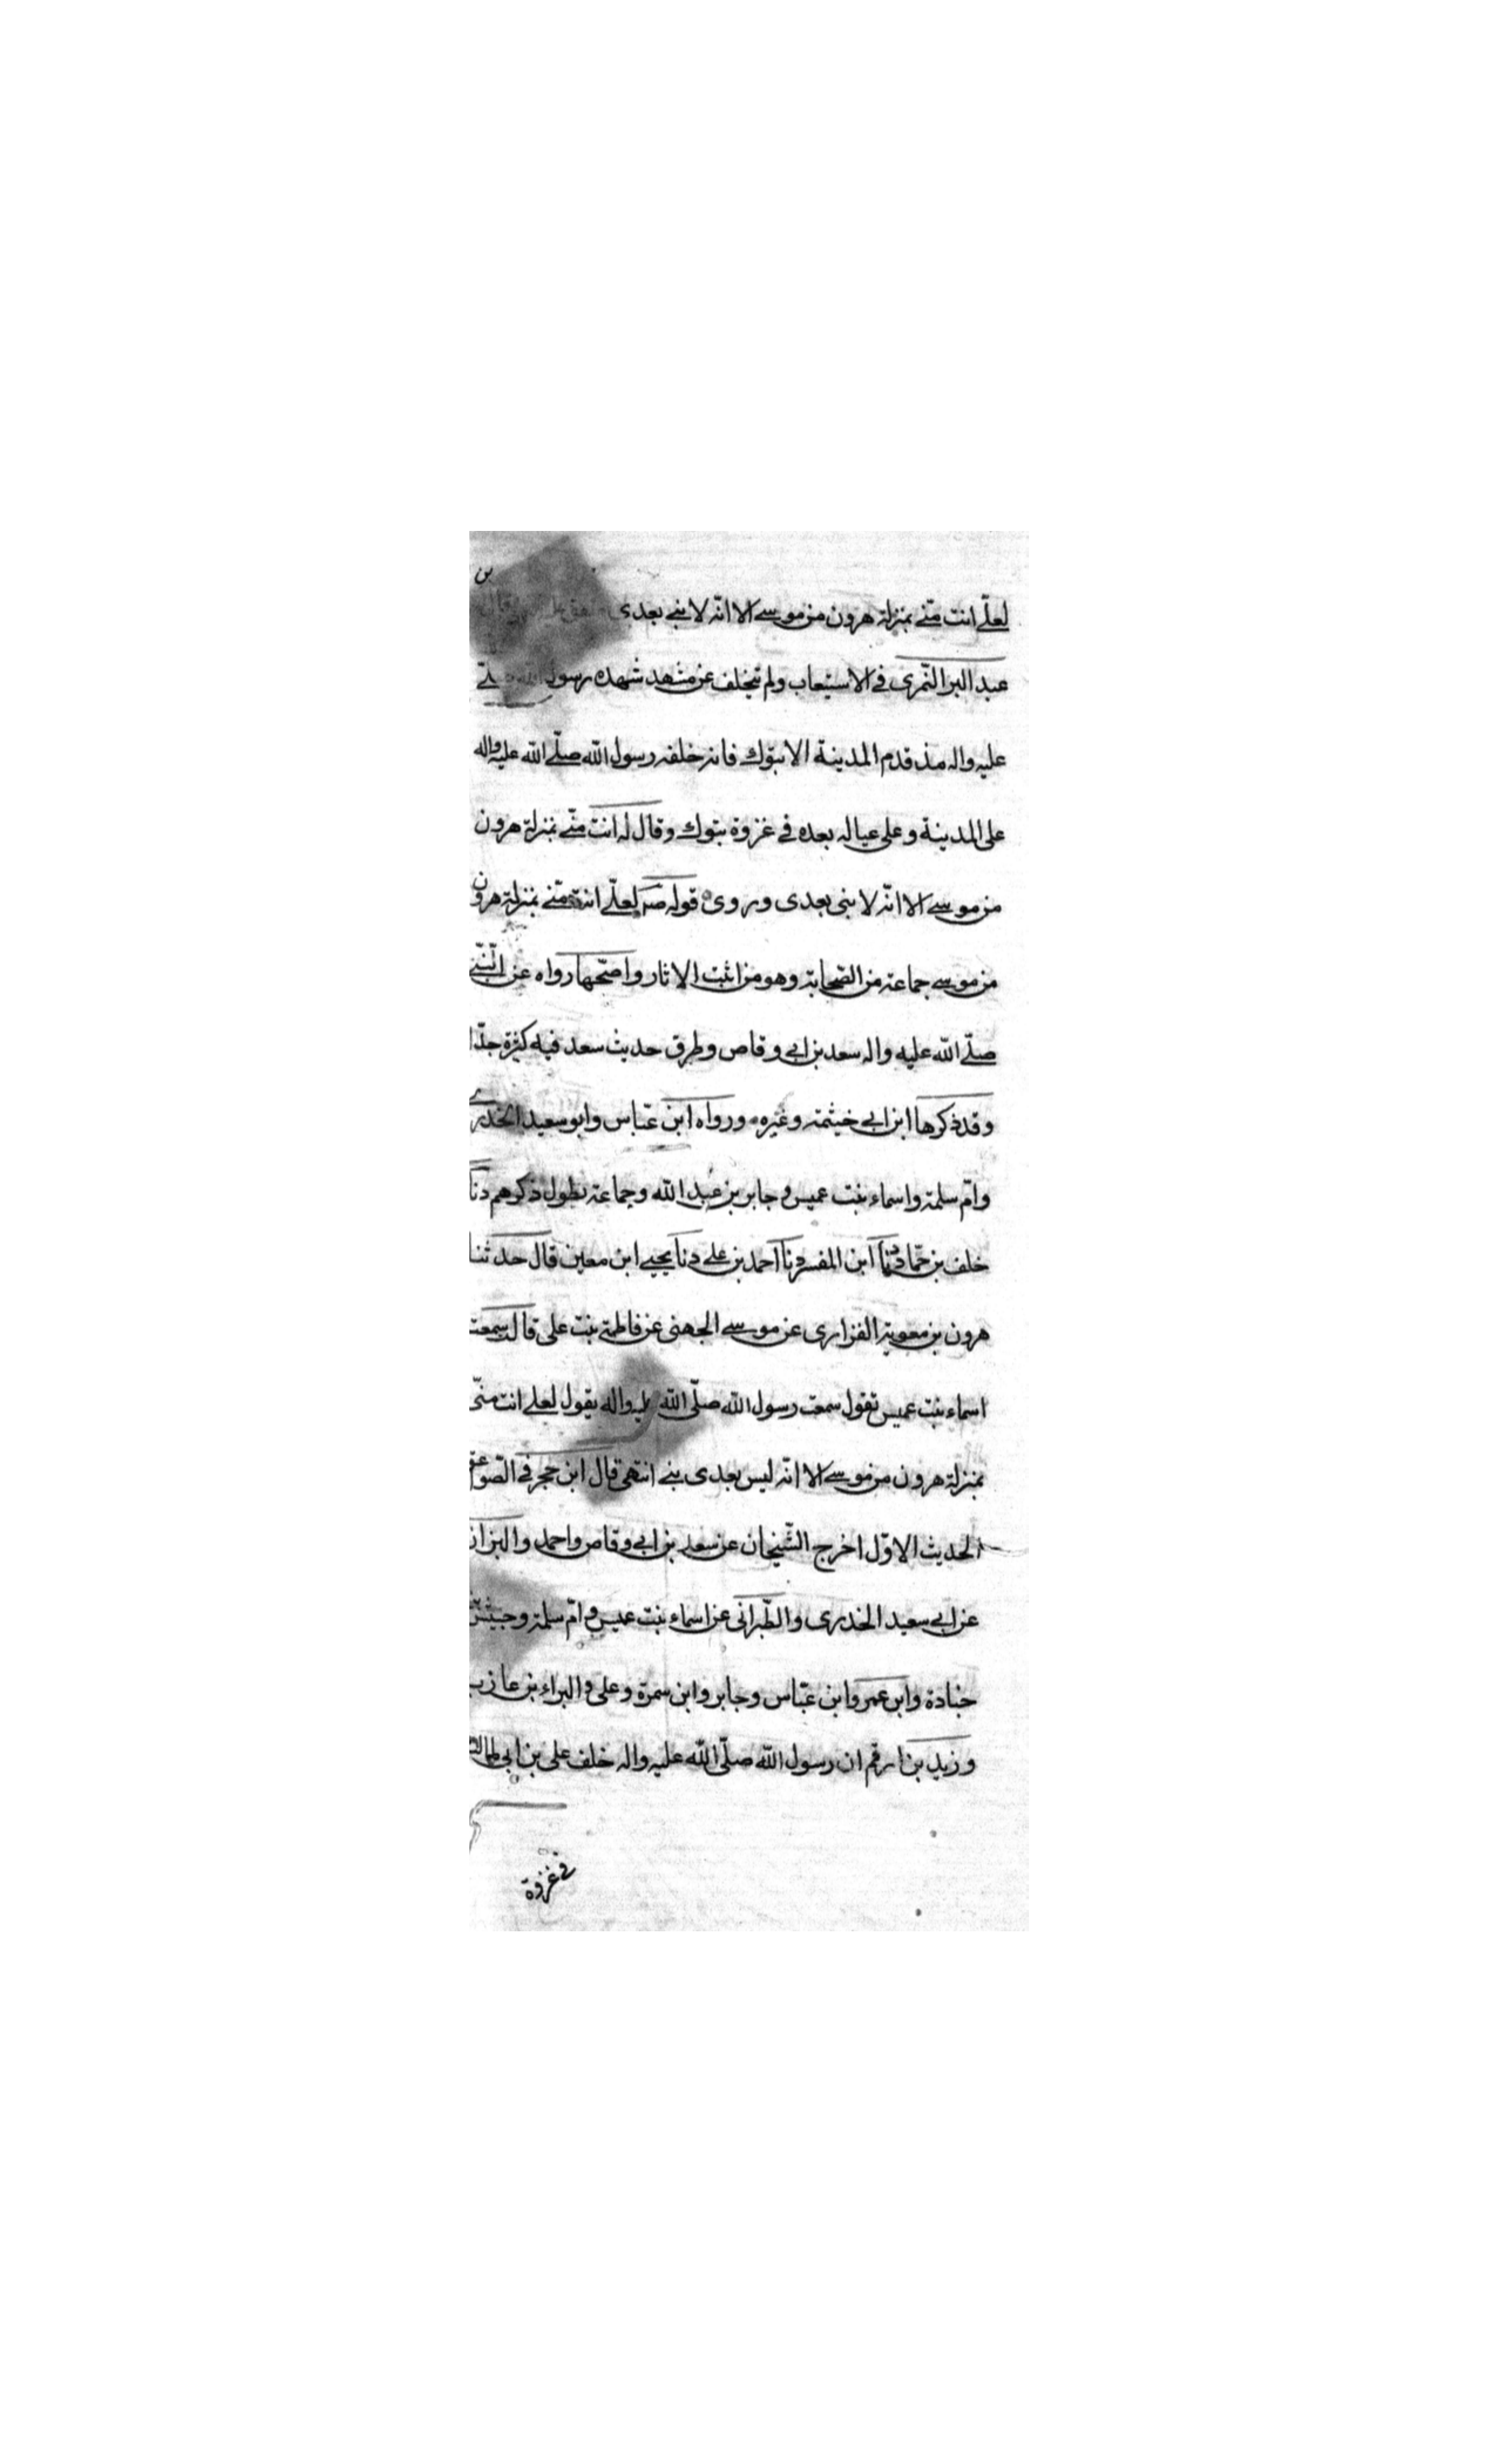 لعلّے انت منّے بمنزلة هرون من موسے الا انّه لا نبے بعدی وقال بن
عبد البر النّمری فے الاستیعاب ولم یتخلف عن مشهد شهده رسول الله صلّے
علیه واله مذ قدم المدینة الا تبوك فانه خلفه رسول الله صلّے الله علیه واله
علی المدینة وعلی عیاله بعده فے غزوة تبوك وقال له انت منّے بمنزلة هرون
من موسے الا انّه لا نبی بعدی وروی قوله صه لعلّے انت منّے بمنزلة هرون
من موسے جماعة من الصّحابة وهو من اثبت الاثار واصحّها رواه عن النّبے
صلّے الله علیه واله سعد بن ابے وقاص وطرق حدیث سعد فیه كثیرة جدّا
وقد ذكرها ابن ابے خیثمة وغیره ورواه ابن عبّاس وابو سعید الخدرے
وامّ سلمة واسماء بنت عمیس و جابر بن عبد الله وجماعة یطول ذكرهم دنا
خلف بن حمّاد دنا ابن المفسر دنا احمد بن علے دنا یحیے ابن معین قال حدثنا
هرون بن معویة الفزاری عن موسے الجهنی عن فاطمة بنت علی قالت سمعت
اسماء بنت عمیس تقول سمعت رسول الله صلّی الله علیه واله یقول لعلے انت منّی
بمنزلة هرون من موسے الا انّه لیس بعدی نبے انتهی قال ابن حجر فے الصّواعق
الحدیث الاوّل اخرج الشّیخان عن سعد بن ابے وقاص واحمد والبزار
عن ابے سعید الخدری والطّبرانی عن اسماء بنت عمیس و امّ سلمة وحبیش بن
جنادة وابن عمر وابن عبّاس وجابر وابن سمرة وعلی والبراء بن عازب
وزید بن ارقم ان رسول الله صلّی الله علیه واله خلف علی بن ابی طالب
فے غزوة